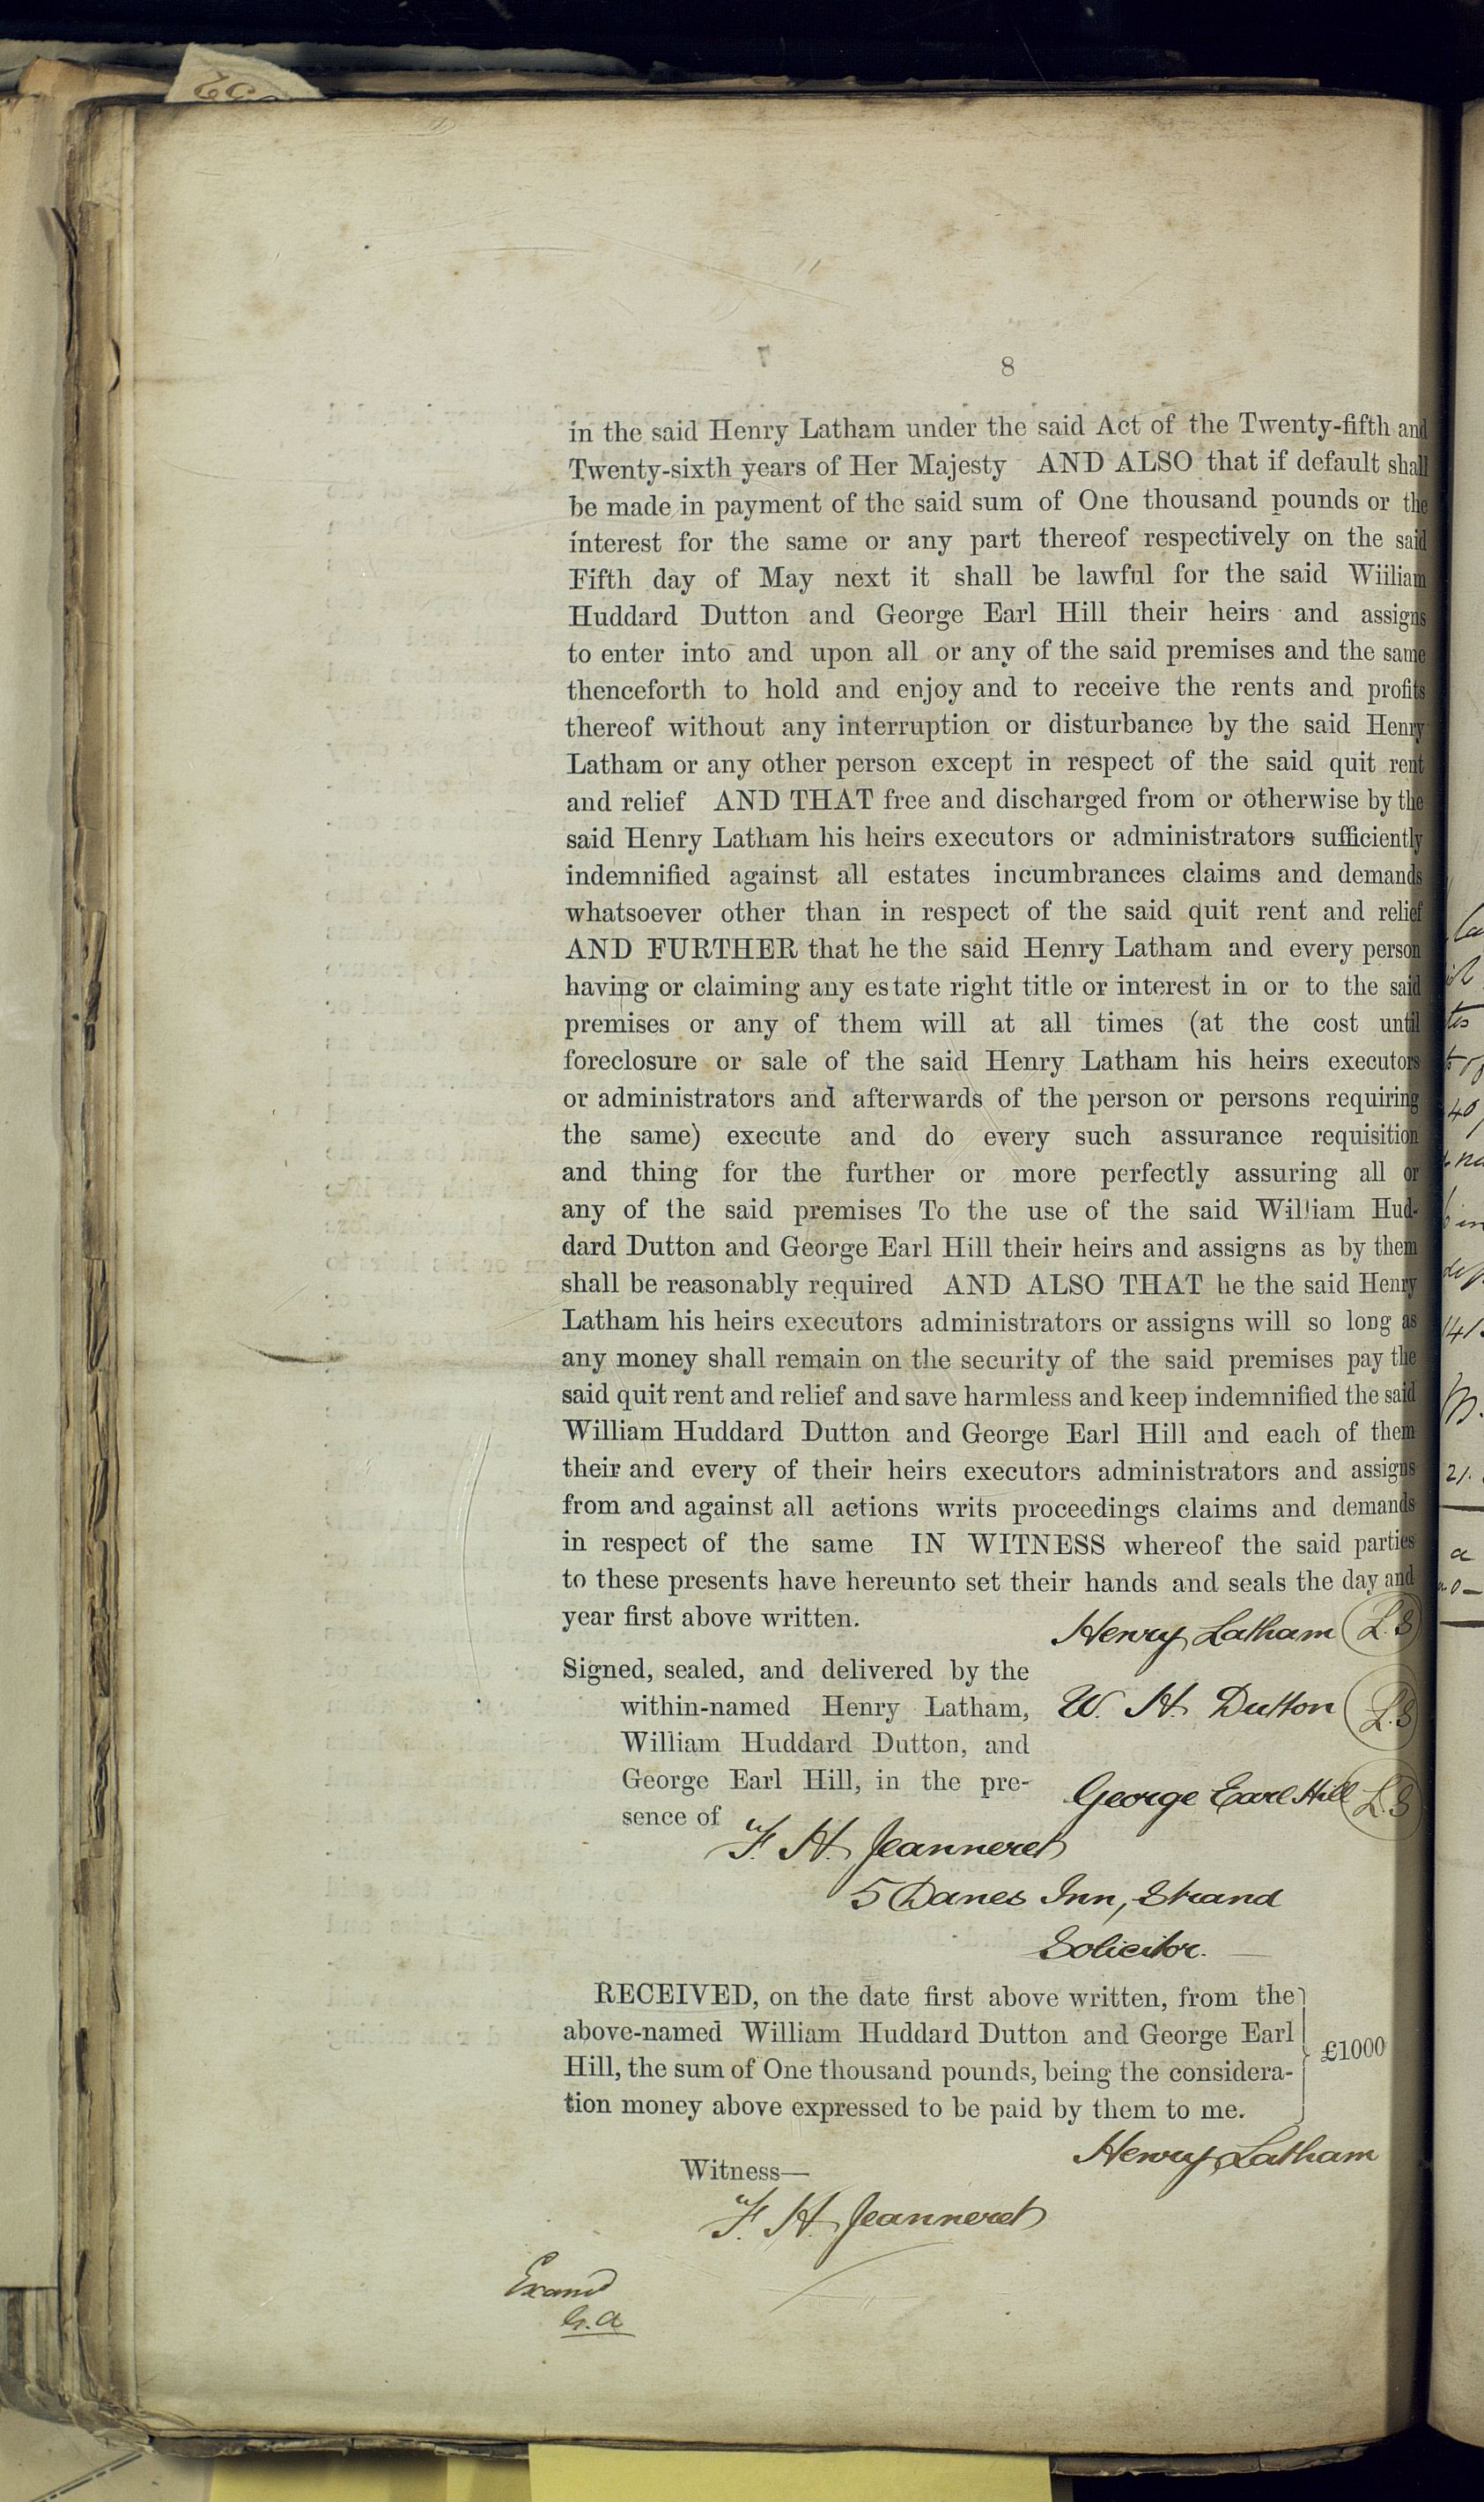 8
in the said Henry Latham under the said Act of the Twenty-fifth and
Twenty-sixth years of Her Majesty AND ALSO that if default shall
be made in payment of the said sum of One thousand pounds or the
interest for the same or any part thereof respectively on the said
Fifth day of May next it shall be lawful for the said Wiiliam
Huddard Dutton and George Earl Hill their heirs and assigns
to enter into and upon all or any of the said premises and the same
thenceforth to hold and enjoy and to receive the rents and profits
thereof without any interruption or disturbance by the said Henry
Latham or any other person except in respect of the said quit rent
and relief AND THAT free and discharged from or otherwise by the
said Henry Latham his heirs executors or administrators sufficiently
indemnified against all estates incumbrances claims and demands
whatsoever other than in respect of the said quit rent and relief
AND FURTHER that he the said Henry Latham and every person
having or claiming any estate right title or interest in or to the said
premises or any of them will at all times (at the cost until
foreclosure or sale of the said Henry Latham his heirs executors
or administrators and afterwards of the person or persons requiring
the same) execute and do every such assurance requisition
and thing for the further or more perfectly assuring all or
any of the said premises To the use of the said William Hud-
dard Dutton and George Earl Hill their heirs and assigns as by them
shall be reasonably required AND ALSO THAT he the said Henry
Latham his heirs executors administrators or assigns will so long as
any money shall remain on the security of the said premises pay the
said quit rent and relief and save harmless and keep indemnified the said
William Huddard Dutton and George Earl Hill and each of them
their and every of their heirs executors administrators and assigns
from and against all actions writs proceedings claims and demands
in respect of the same IN WITNESS whereof the said parties
to these presents have hereunto set their hands and seals the day and
year first above written.
Henry Latham L.S
Signed, sealed, and delivered by the
within-named Henry Latham,
W. H. Dutton L.S
William Huddard Dutton, and
George Earl Hill, in the pre-
George Earl Hill L.S
sence of
F. H. Jeanneret
5 Danes Inn, Strand
Solicitor.
RECEIVED, on the date first above written, from the
above-named William Huddard Dutton and George Earl
£1000
Hill, the sum of One thousand pounds, being the considera-
tion money above expressed to be paid by them to me.
Henry Latham
Witness—
F. H. Jeanneret
Examd
G.A